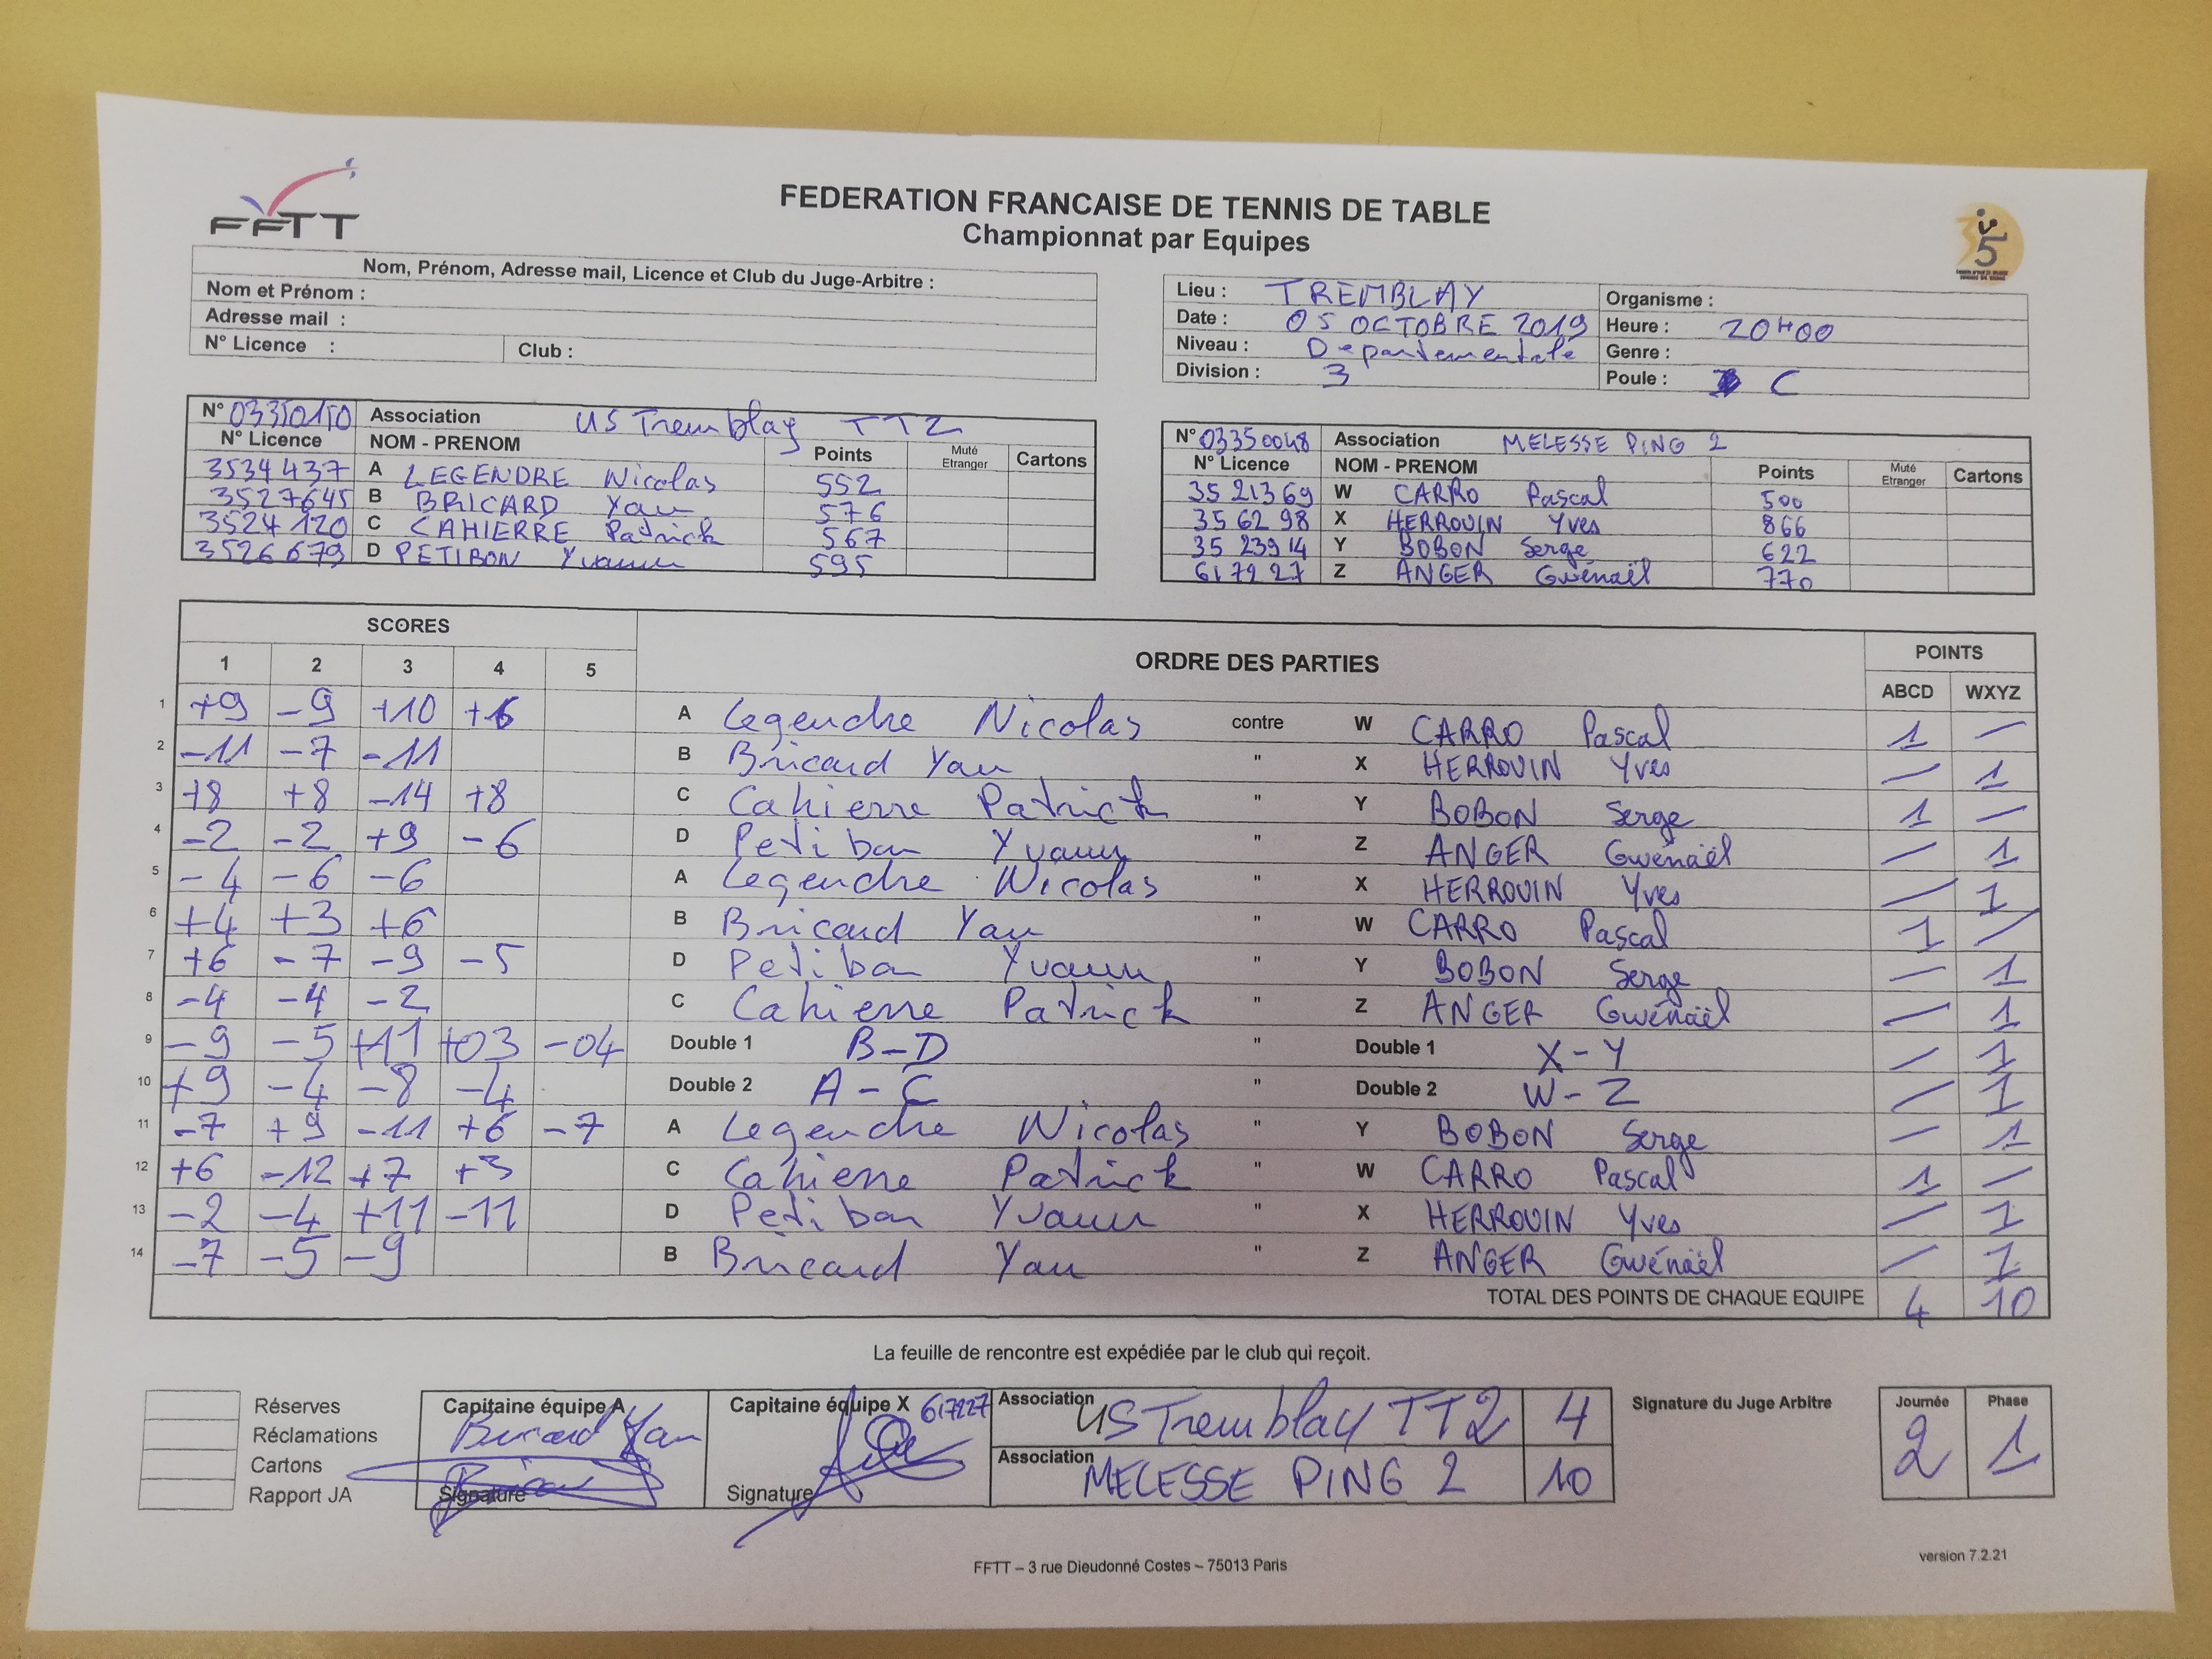 FFTT
FEDERATION FRANCAISE DE TENNIS DE TABLE
Championnat par Equipes
35
Nom, Prénom, Adresse mail, Licence et Club du Juge-Arbitre :
Nom et Prénom :
Adresse mail :
N° Licence : Club :
Lieu : TREMBLAY Organisme :
Date : 05 OCTOBRE 2019 Heure : 20H00
Niveau : Departementale Genre :
Division : 3 Poule : C
N° 03350150 Association US Tremblay TT2
N° Licence NOM - PRENOM Points Muté Etranger Cartons
3534437 A LEGENDRE Nicolas 552
3527645 B BRICARD Yan 576
3524120 C CAHIERRE Patrick 567
3526679 D PETIBON Yvann 595
N° 03350048 Association MELESSE PING 2
N° Licence NOM - PRENOM Points Muté Etranger Cartons
35 21369 W CARRO Pascal 500
35 62 98 X HERROUIN Yves 866
35 23914 Y BOBON Serge 622
617927 Z ANGER Gwénaël 770
SCORES ORDRE DES PARTIES POINTS
1 2 3 4 5 ABCD WXYZ
1 +9 -9 +10 +6 A Legendre Nicolas contre W CARRO Pascal 1 —
2 -11 -7 -11 B Bricard Yan " X HERROUIN Yves — 1
3 +8 +8 -14 +8 C Cahierre Patrick " Y BOBON Serge 1 —
4 -2 -2 +9 -6 D Petibon Yvann " Z ANGER Gwénaël — 1
5 -4 -6 -6 A Legendre Nicolas " X HERROUIN Yves — 1
6 +4 +3 +6 B Bricard Yan " W CARRO Pascal 1 —
7 +6 -7 -9 -5 D Petibon Yvann " Y BOBON Serge — 1
8 -4 -4 -2 C Cahierre Patrick " Z ANGER Gwénaël — 1
9 -9 -5 +11 +03 -04 Double 1 B-D " Double 1 X-Y — 1
10 +9 -4 -8 -4 Double 2 A-C " Double 2 W-Z — 1
11 -7 +9 -11 +6 -7 A Legendre Nicolas " Y BOBON Serge — 1
12 +6 -12 +7 +3 C Cahierre Patrick " W CARRO Pascal 1 —
13 -2 -4 +11 -11 D Petibon Yvann " X HERROUIN Yves — 1
14 -7 -5 -9 B Bricard Yan " Z ANGER Gwénaël — 1
TOTAL DES POINTS DE CHAQUE EQUIPE 4 10
La feuille de rencontre est expédiée par le club qui reçoit.
Réserves
Réclamations
Cartons
Rapport JA
Capitaine équipe A
Bricard Yan
Signature
Capitaine équipe X 617227
Signature
Association US Tremblay TT2 4
Association MELESSE PING 2 10
Signature du Juge Arbitre
Journée Phase
2 1
FFTT – 3 rue Dieudonné Costes – 75013 Paris
version 7.2.21